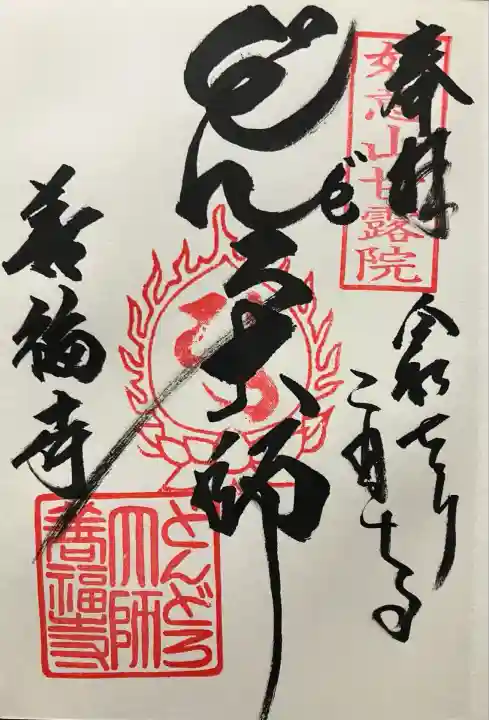 奉拝
如意山甘露院
令和
二月
どんどろ大師
善福寺
とんどろ
大師
善福寺